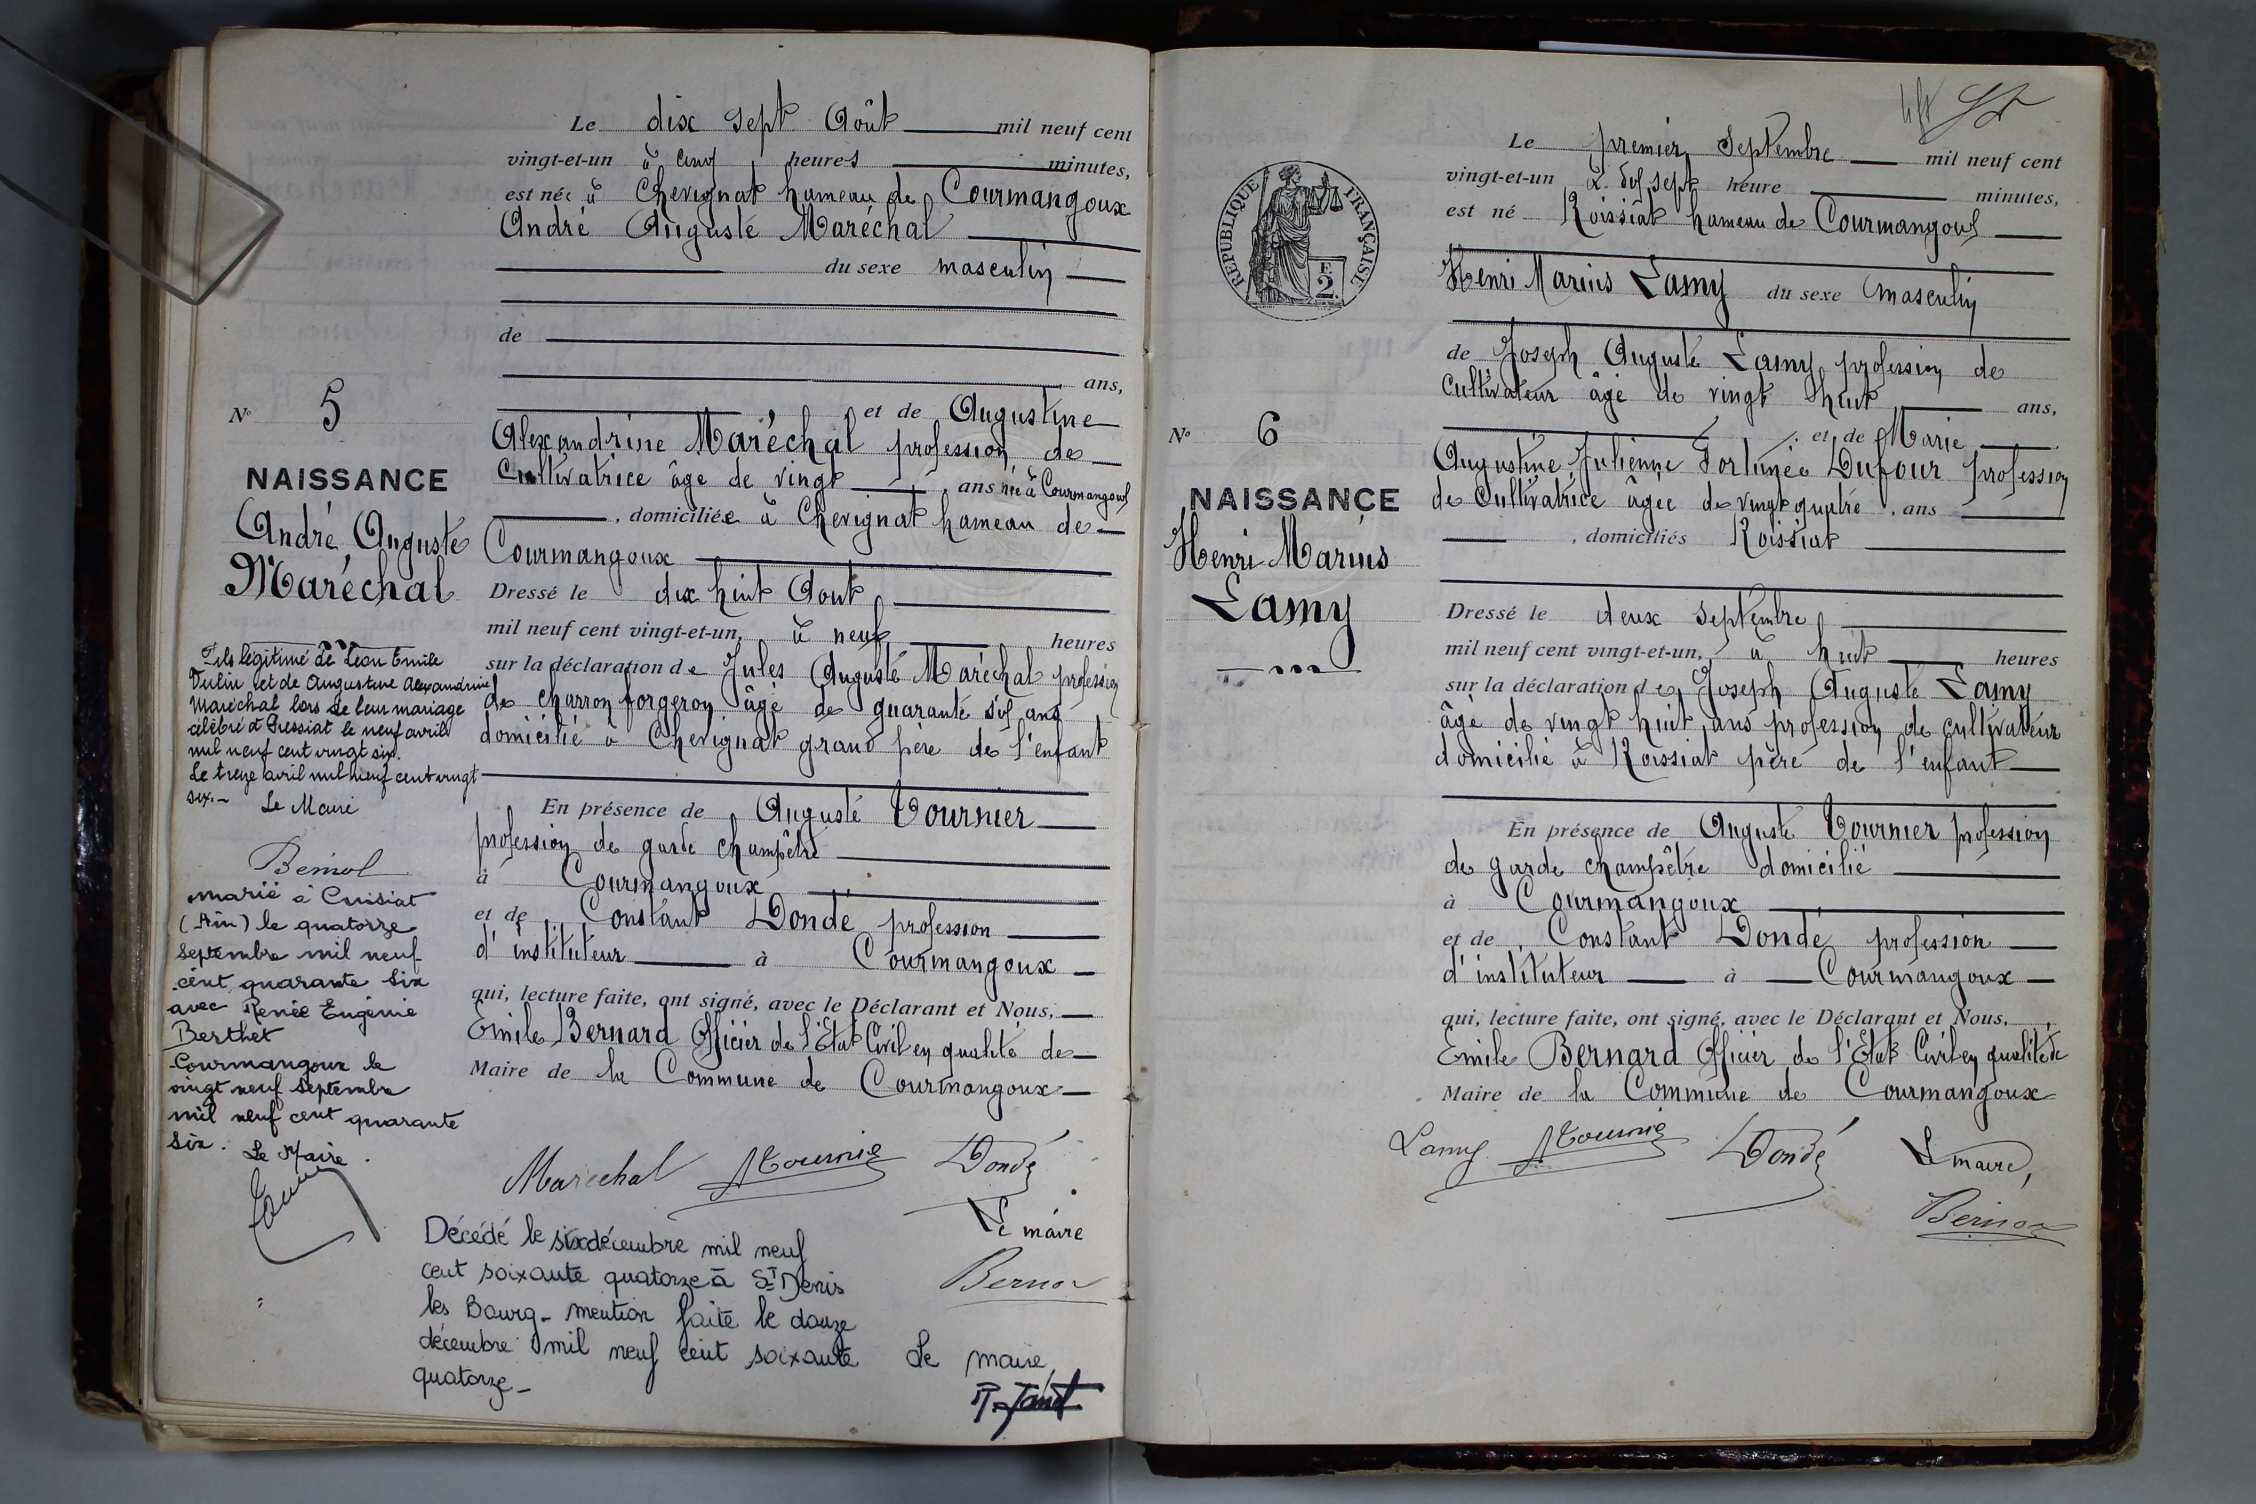 Le dix sept Août mil neuf cent
vingt-et-un à cinq heures minutes,
est né à Chevignat hameau de Courmangoux
André Auguste Maréchal
du sexe masculin
de
ans,
et de Augustine
Alexandrine Maréchal profession de
Cultivatrice âgé de vingt ans née à Courmangoux
, domiciliée à Chevignat hameau de
Courmangoux
Dressé le dix huit Aout
mil neuf cent vingt-et-un, à neuf heures
sur la déclaration de Jules Auguste Maréchal profession
de charron forgeron âgé de quarante six ans
domicilié à Chevignat grand père de l'enfant
En présence de Auguste Tournier
profession de garde champêtre
à Courmangoux
et de Constant Dondé profession
d'instituteur à Courmangoux
qui, lecture faite, ont signé, avec le Déclarant et Nous,
Emile Bernard Officier de l'Etat Civil en qualité de
Maire de la Commune de Courmangoux
Maréchal ATournier Dondé
Le maire
Décédé le six décembre mil neuf
cent soixante quatorze à St Denis
les Bourg - mention faite le douze
décembre mil neuf cent soixante
quatorze -
Le maire
N° 5
NAISSANCE
André Auguste
Maréchal
Fils légitimé de Léon Emile
Vulin et de Augustine Alexandrine
Maréchal lors de leur mariage
célébré à Pressiat le neuf avril
mil neuf cent vingt six.
Le treize avril mil neuf cent vingt
six. - Le Maire
marié à Cuisiat
(Ain) le quatorze
septembre mil neuf
cent quarante six
avec Renée Eugénie
Berthet
Courmangoux le
vingt neuf septembre
mil neuf cent quarante
six. Le Maire.
RÉPUBLIQUE FRANÇAISE
F.
2.
Le premier Septembre mil neuf cent
vingt-et-un à dix sept heure minutes,
est né Roissiat hameau de Courmangoux
Henri Marius Lamy du sexe masculin
de Joseph Auguste Lamy profession de
cultivateur âgé de vingt huit ans,
et de Marie
Augustine Julienne Fortunée Dufour profession
de Cultivatrice âgée de vingt quatre ans
, domiciliés Roissiat
Dressé le deux septembre
mil neuf cent vingt-et-un, à huit heures
sur la déclaration de Joseph Auguste Lamy
âgé de vingt huit ans profession de cultivateur
domicilié à Roissiat père de l'enfant
En présence de Auguste Tournier profession
de garde champêtre domicilié
à Courmangoux
et de Constant Dondé profession
d'instituteur à Courmangoux
qui, lecture faite, ont signé, avec le Déclarant et Nous,
Emile Bernard Officier de l'Etat Civil en qualité de
Maire de la Commune de Courmangoux
Lamy ATournier Dondé Le maire,
N° 6
NAISSANCE
Henri Marius
Lamy